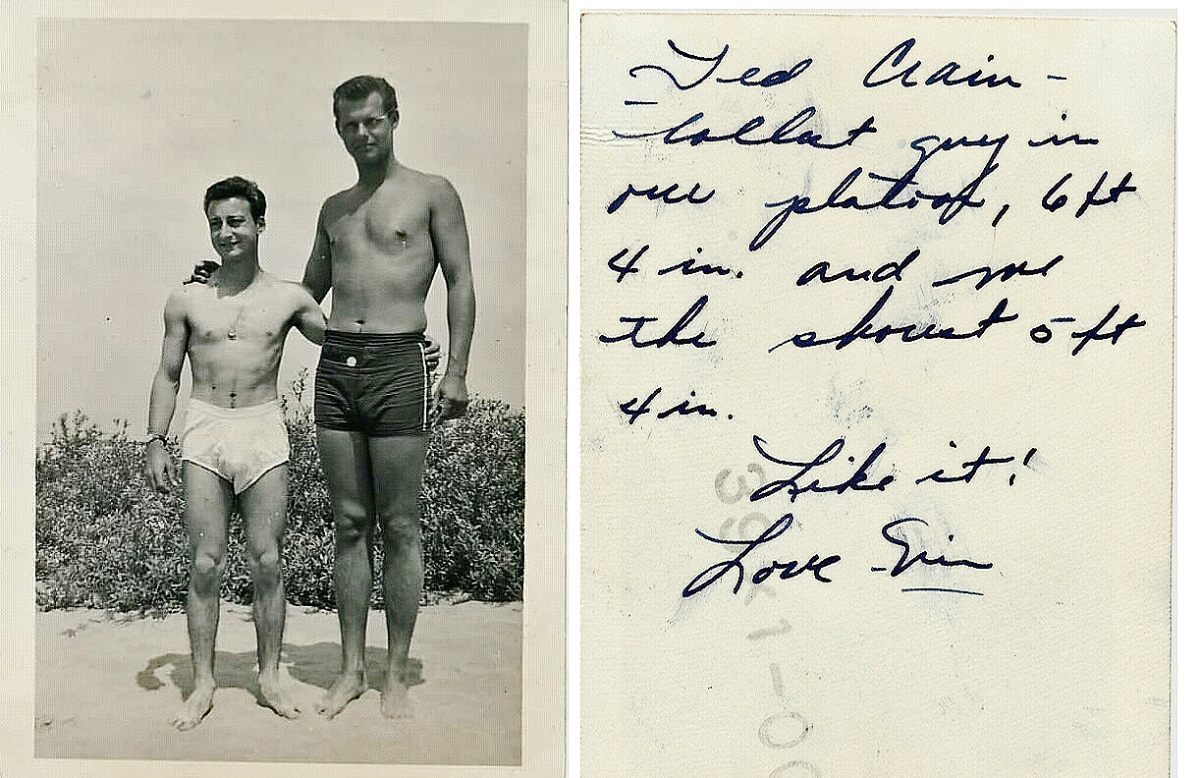 Ted Crain -
tallest guy in
our platoon, 6 ft
4 in. and me
the shortest 5 ft
4 in.
Like it!
Love